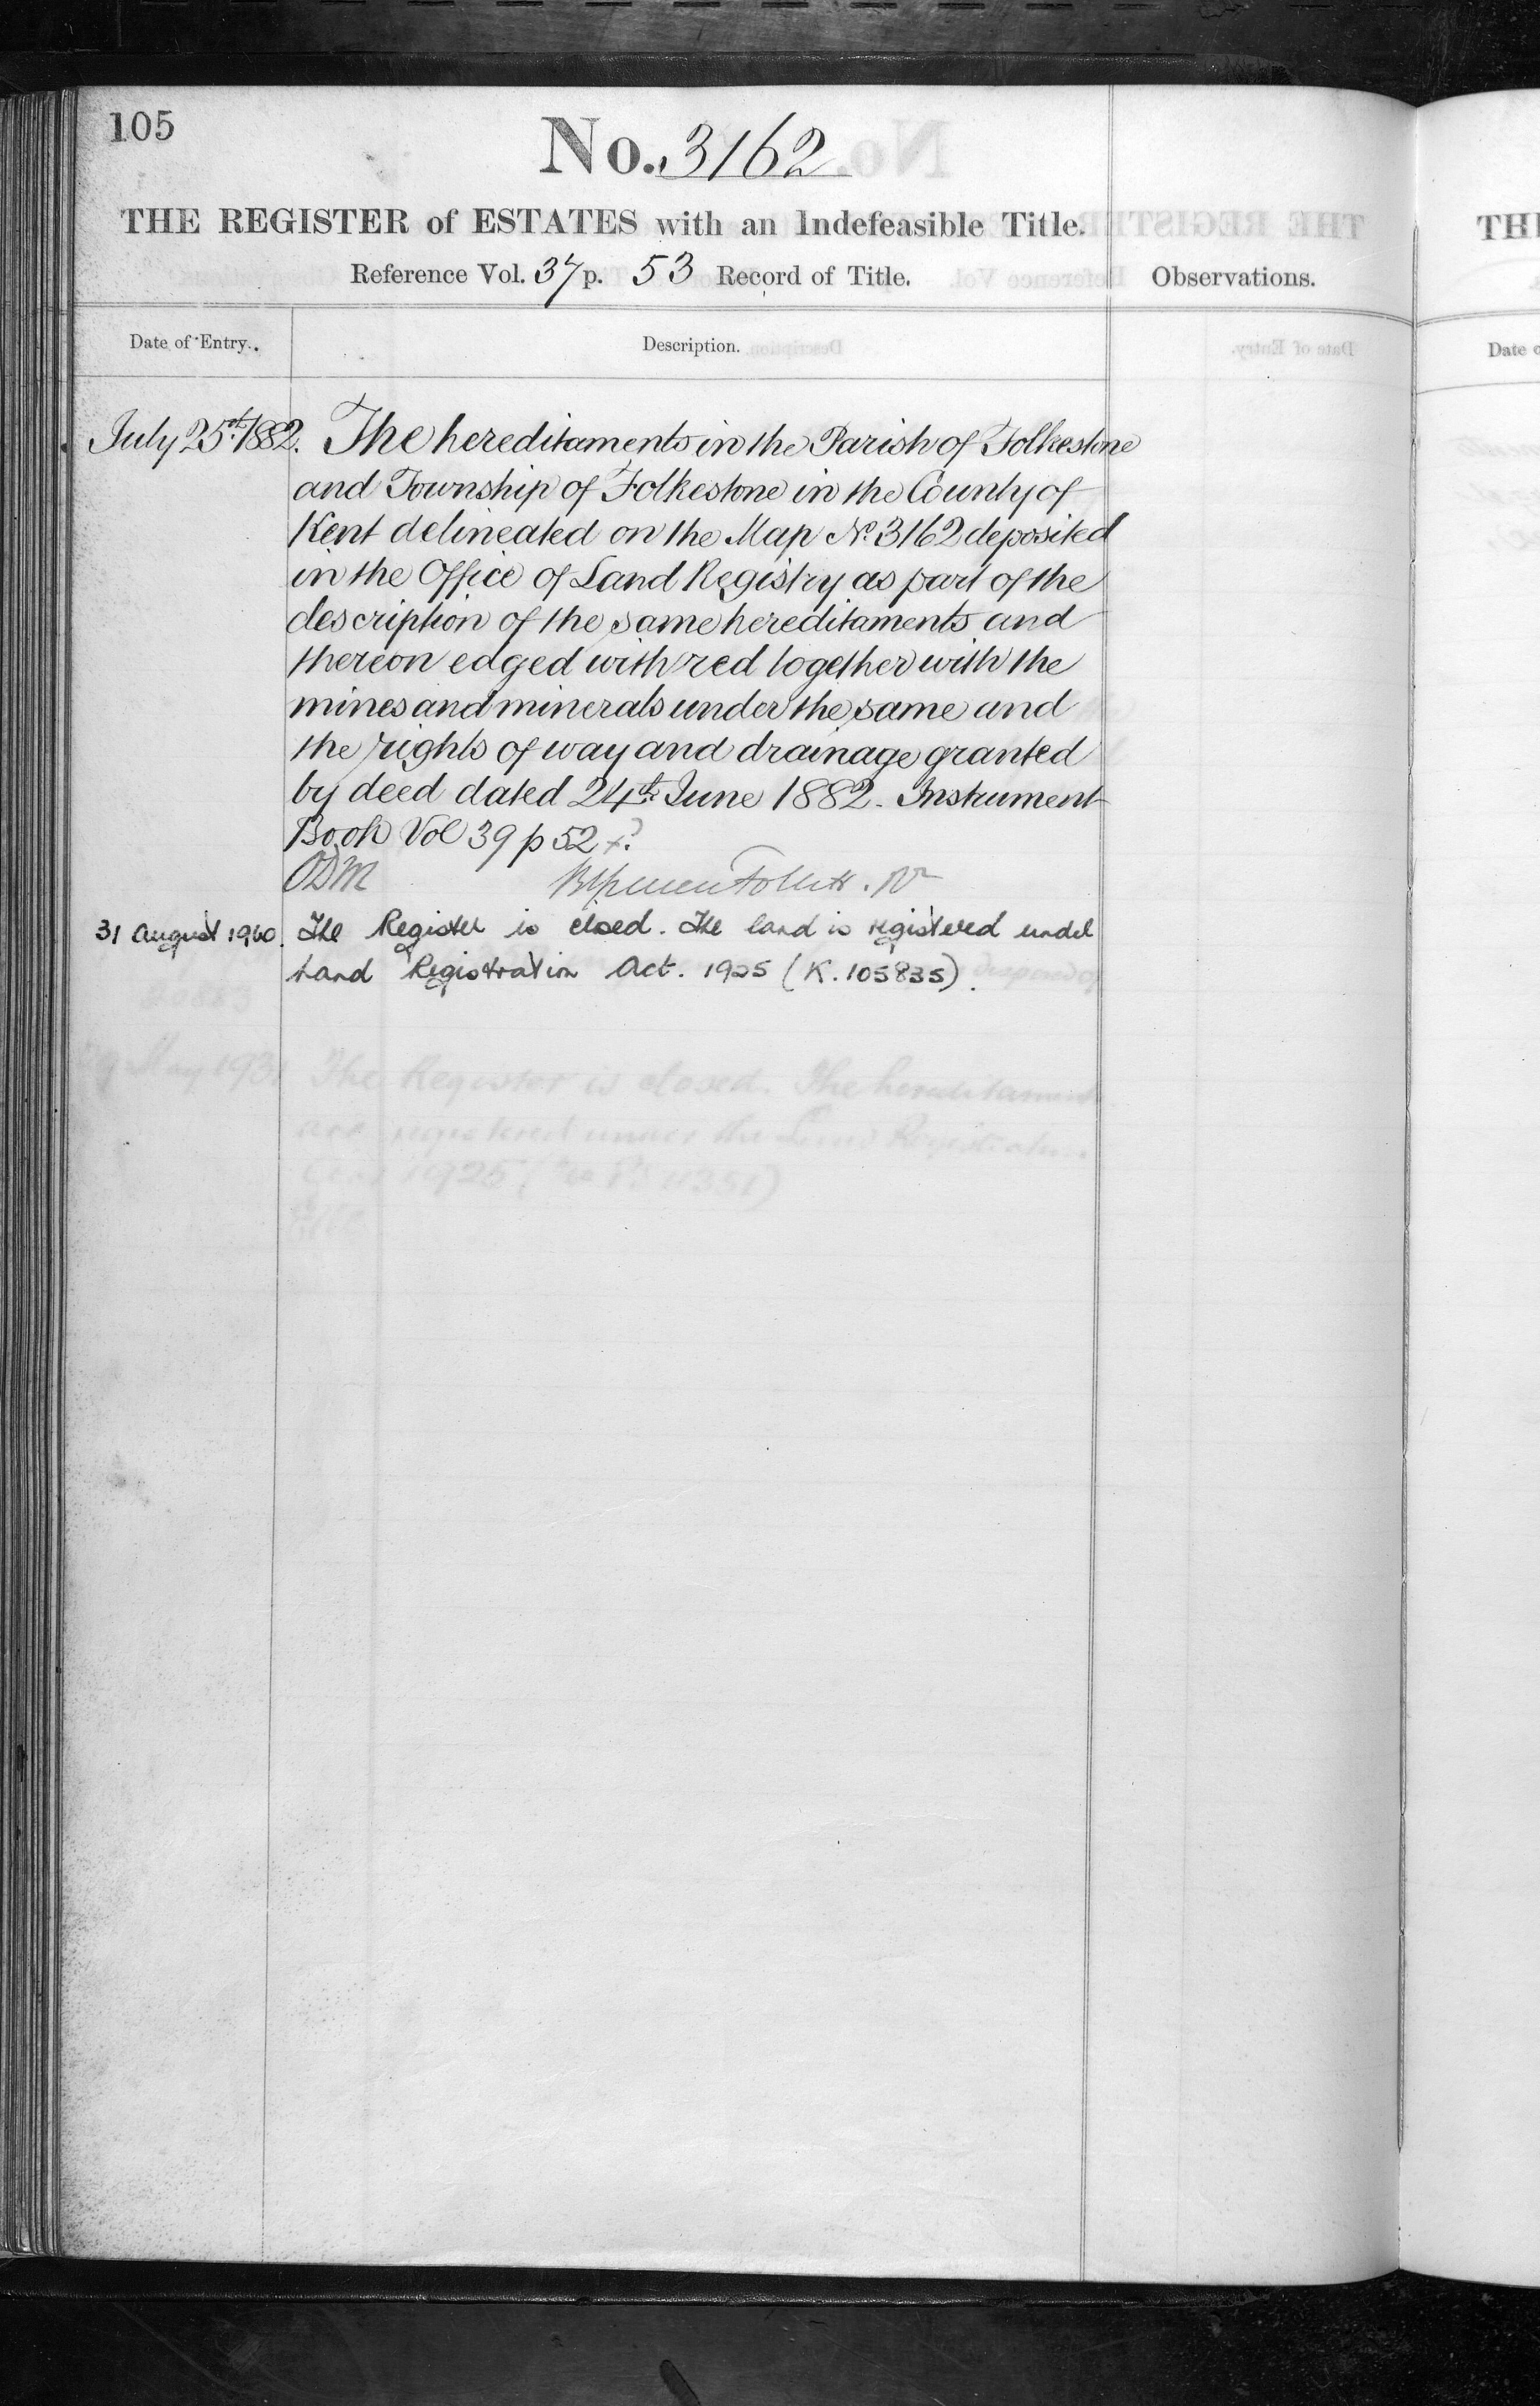 105
No. 3162
THE REGISTER of ESTATES with an Indefeasible Title.
Reference Vol. 37 p. 53 Record of Title.
Observations.
Date of Entry.
Description.
July 25th 1882. The hereditaments in the Parish of Folkestone
and Township of Folkestone in the County of
Kent delineated on the Map No. 3162 deposited
in the Office of Land Registry as part of the
description of the same hereditaments and
thereon edged with red together with the
mines and minerals under the same and
the rights of way and drainage granted
by deed dated 24th June 1882. Instrument
Book Vol 39 p 52
ODM
31 August 1960. The Register is closed. The land is registered under
Land Registration Act. 1925 (K. 105835).
May 193
The Register is closed. The hereditaments
are registered under the Land Registration
1925
TH
Date o